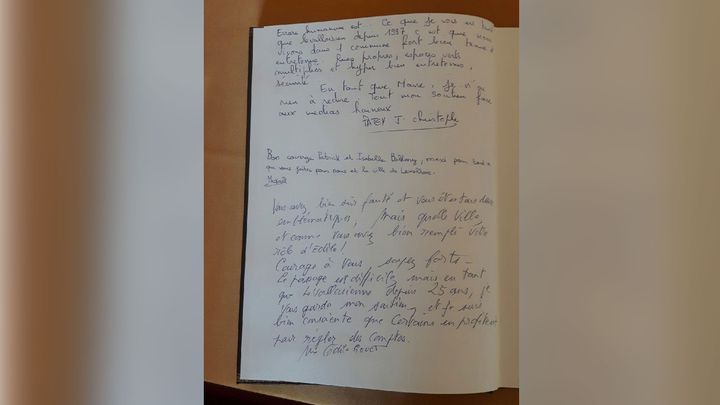 Errare humanum est. Ce que je vois en tant
que levalloisien depuis 1987 c est que nous
vivons dans 1 commune fort bien tenue &
entretenue. Rues propres, espaces verts
multipliés et hyper bien entretenus,
sécurité
En tant que Maire, je n'ai
rien à redire. Tout mon soutien face
aux medias haineux
J. Christophe
Bon courage Patrick et Isabelle Balkany, merci pour tout ce
que vous faites pour nous et la ville de Levallois.
Vous avez bien sûr fauté et vous êtes tous deux
emblématiques, Mais quelle Ville,
et comme vous avez bien rempli votre
rôle d'Edile!
Courage à Vous soyez forts -
Le passage est difficile, mais en tant
que Levalloisienne depuis 25 ans, je
Vous garde mon soutien, et je suis
bien consciente que Certains en profitent
pour régler des Comptes.